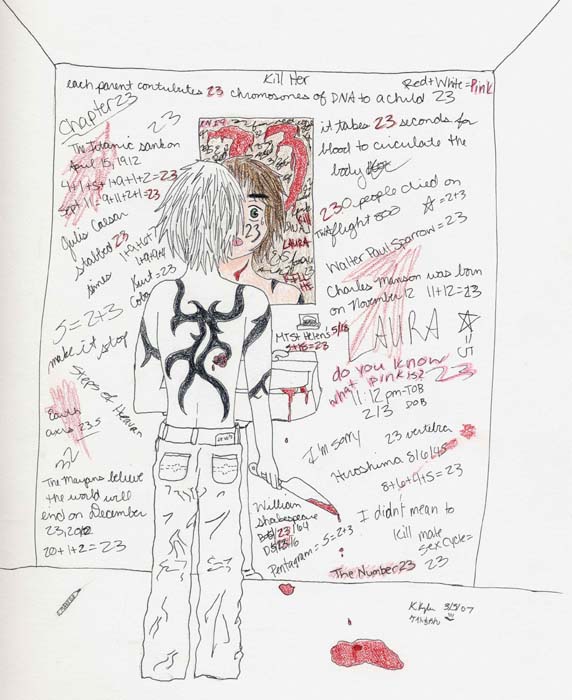 Kill Her
Red + White = Pink
each parent contributes 23 chromosones of DNA to a child 23
Chapter 23
23
The Titanic sank on
April 15, 1912
4+1+5+1+9+1+2=23
Sept 11 = 9+11+2+1=23
Julis Caesar
stabbed 23
times
Kurt = 23
5=2+3
make it stop
Steps of Heaven
Earth
axis 23.5
The Mayans believe
the world will
end on December
23, 2012
20+1+2=23
23
kill
LAURA
KILL
HE
it takes 23 seconds for
blood to circulate the
body
230 people died on
TWA flight 800
☆=2+3
Walter Paul Sparrow = 23
Charles Manson was born
on November 12 11+12=23
LAURA
Mt St Helens 5/18
5+18=23
do you know
what pink is?
23
11:12 pm-TOB
2/3 DOB
I'm sorry
23 vertebra
Hiroshima 8/6/45
8+6+4+5=23
I didn't mean to
kill
mate
sex cycle=
23
William
Shakespeare
Pentagram=5=2+3
The Number 23
K. Kyle 3/3/07